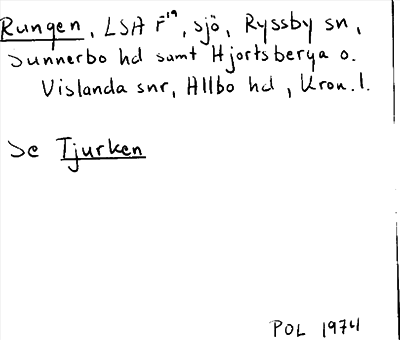 Rungen, LSA F19, sjö, Ryssby sn,
Sunnerbo hd samt Hjortsberga o.
Vislanda snr, Allbo hd, Kron. l.
Se Tjurken
POL 1974